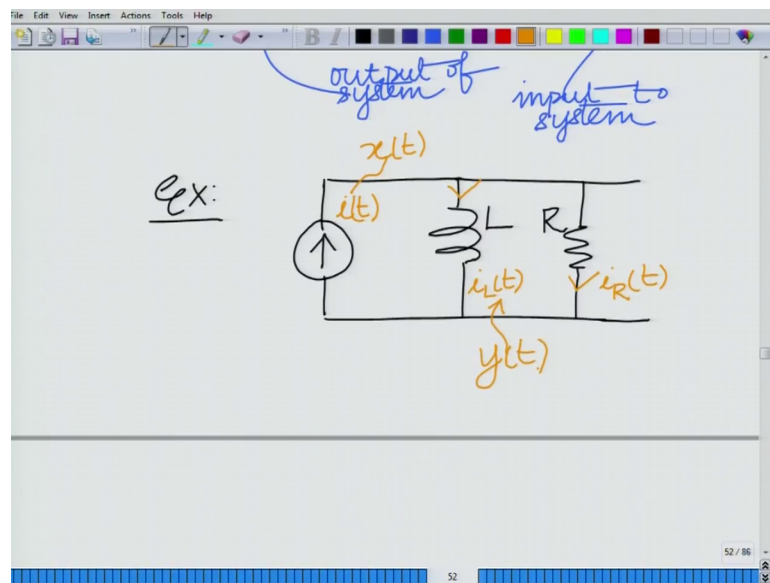 File Edit View Insert Actions Tools Help
B I
output of
system
input to
system
x(t)
Ex:
i(t)
L
R
i_L(t)
i_R(t)
y(t)
52 / 86
52